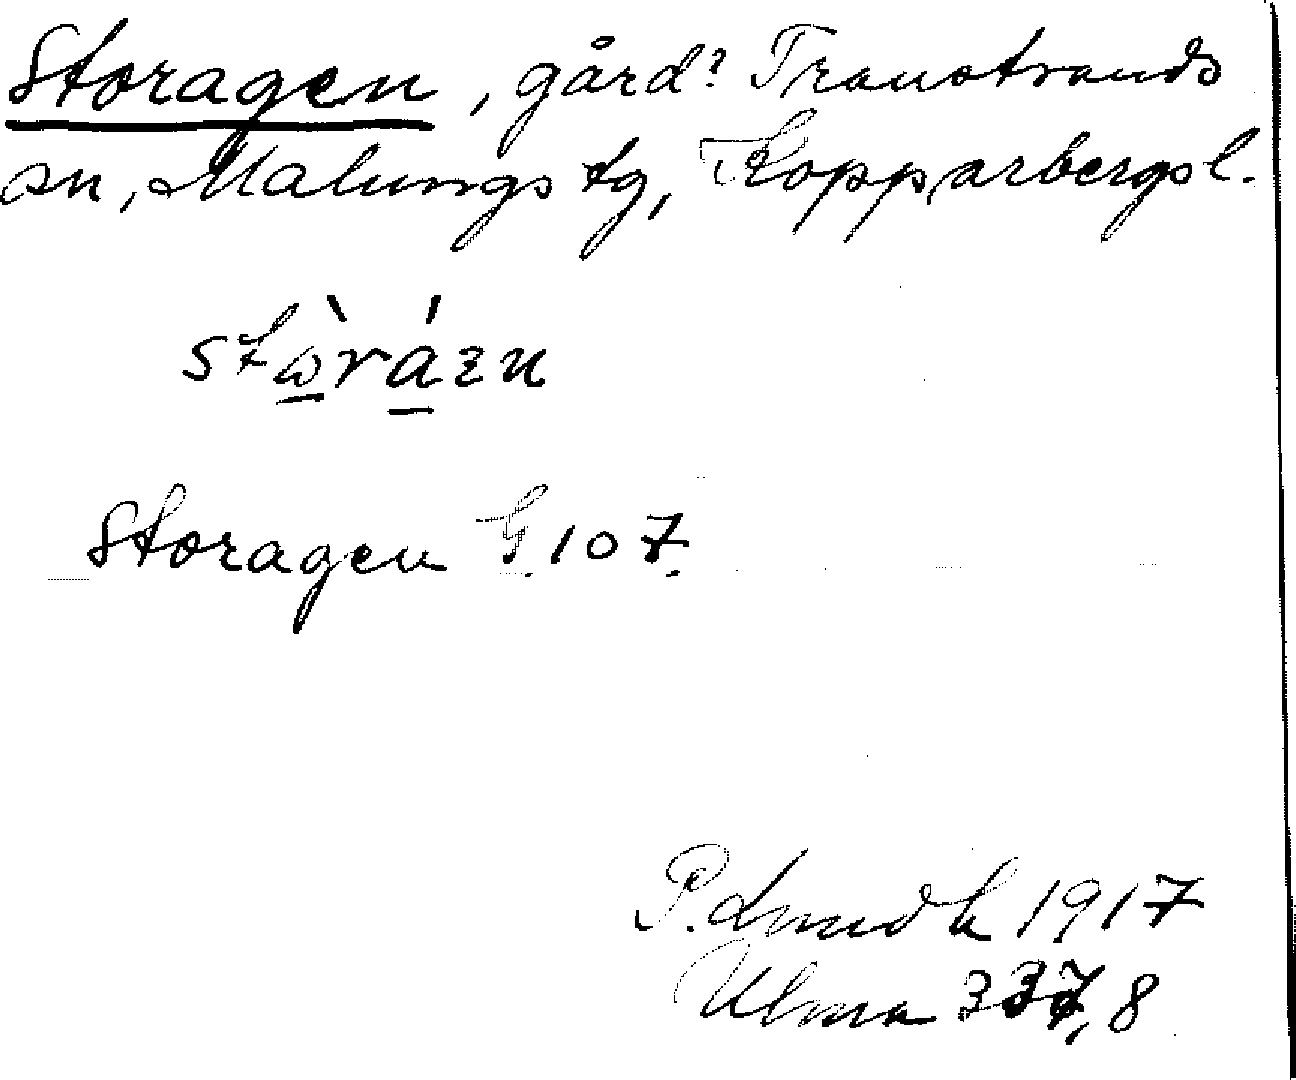 Storagen, gård? Transtrands
sn, Malungs tg, Kopparbergs l.
stὼ̲rá̲ᴈn
Storagen G. 107.
P. Lindh 1917
Ulma 337, 8